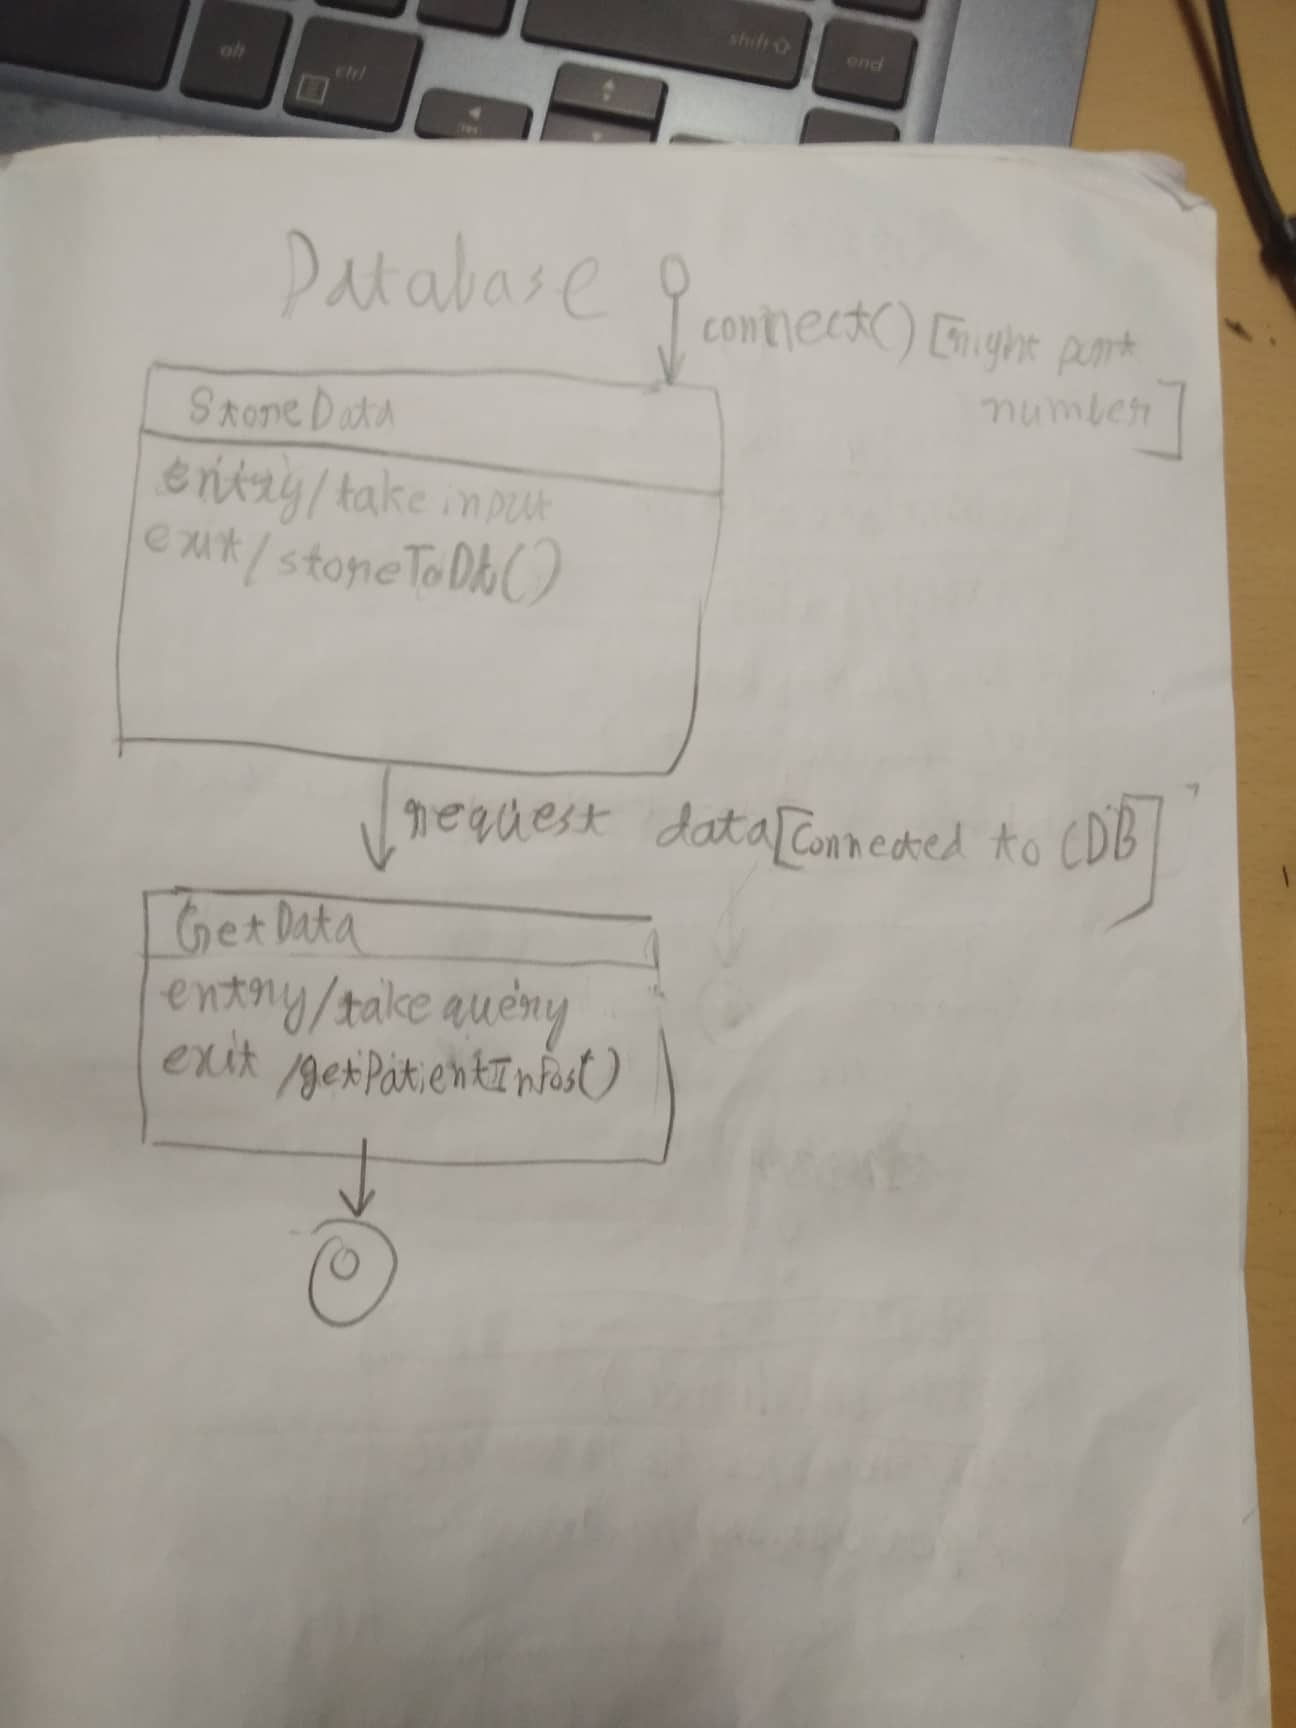 alt
ctrl
shift
end
Database
connect() [right port
number]
StoreData
entry/take input
exit/storeToDb()
request data[Connected to CDB]
GetData
entry/take query
exit /getPatientInfos()